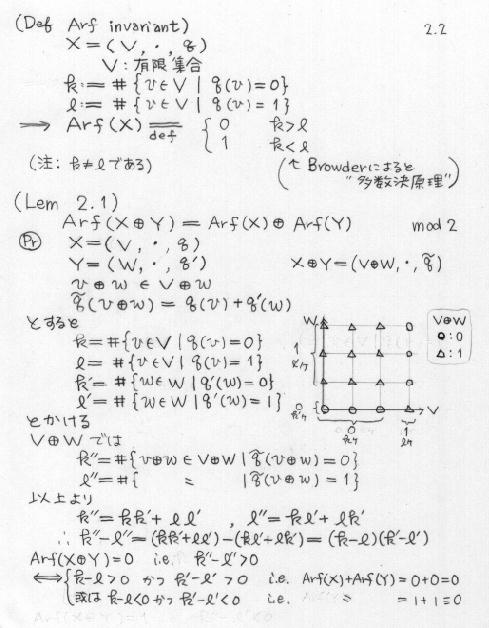 (Def Arf invariant) 2.2
X = (V, ・, q)
V : 有限集合
k := #{v∈V | q(v)=0}
l := #{v∈V | q(v)=1}
⟹ Arf(X) ≝ { 0 k>l
1 k<l
(注: k≠l である) (↑ Browder によると
"多数決原理")
(Lem 2.1)
Arf(X⊕Y) = Arf(X)⊕Arf(Y) mod 2
Pr X = (V, ・, q)
Y = (W, ・, q') X⊕Y = (V⊕W, ・, q̃)
v⊕w ∈ V⊕W
q̃(v⊕w) = q(v) + q'(w)
とすると
k = #{v∈V | q(v)=0}
l = #{v∈V | q(v)=1}
k' = #{w∈W | q'(w)=0}
l' = #{w∈W | q'(w)=1}
W
V⊕W
○:0
△:1
1
l'ケ
0
k'ケ
V
0
kケ
1
lケ
とかける
V⊕W では
k'' = #{v⊕w ∈ V⊕W | q̃(v⊕w)=0}
l'' = #{ 〃 | q̃(v⊕w)=1}
以上より
k'' = kk' + ll' , l'' = kl' + lk'
∴ k''-l'' = (kk'+ll')-(kl'+lk') = (k-l)(k'-l')
Arf(X⊕Y)=0 i.e. k''-l''>0
⟺ { k-l>0 かつ k'-l'>0 i.e. Arf(X)+Arf(Y) = 0+0=0
或は k-l<0 かつ k'-l'<0 i.e. 〃 = 1+1=0